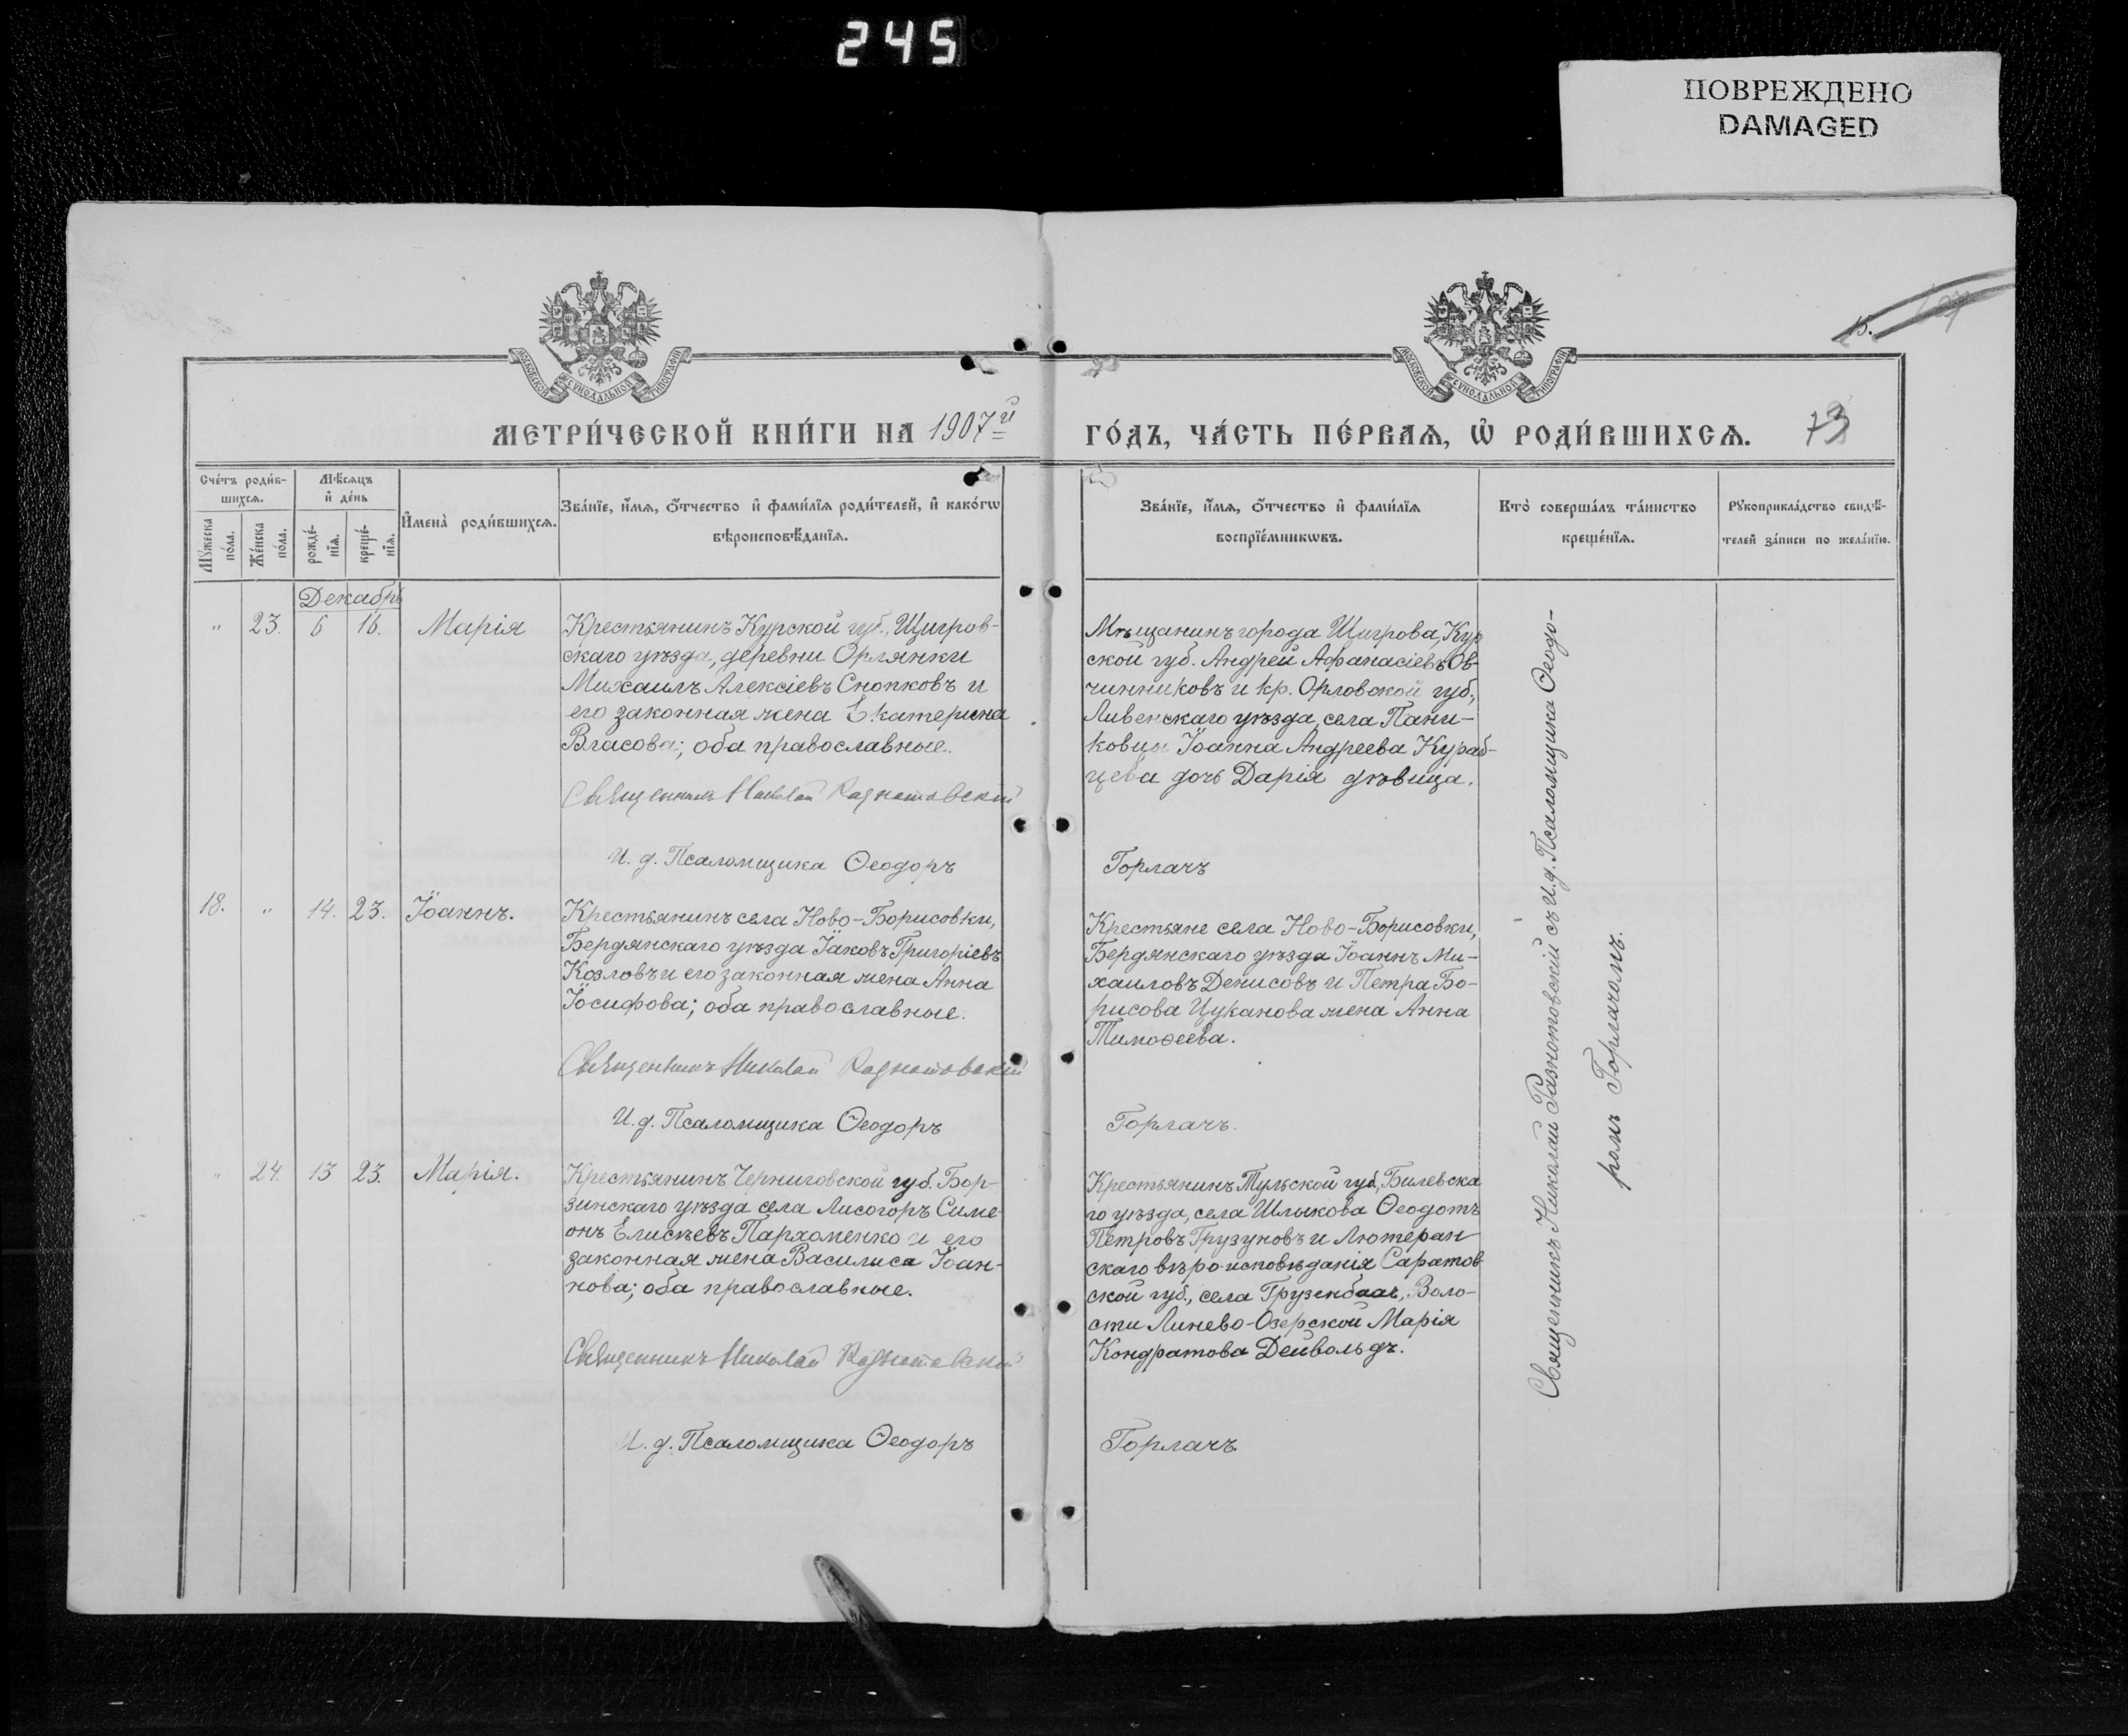 245
ПОВРЕЖДЕНО
DAMAGED
МОСКОВСКОЙ СѴНОДАЛЬНОЙ ТИПОГРАФІИ
МОСКОВСКОЙ СѴНОДАЛЬНОЙ ТИПОГРАФІИ
15.
МЕТРИ́ЧЕСКОЙ КНИ́ГИ НА 1907й
ГО́ДЪ, ЧА́СТЬ ПЕ́РВАѦ, Ѡ РОДИ́ВШИХСѦ.
73
Сче́тъ роди́в-
шихсѧ.
Мꙋ́жеска
по́ла.
Же́нска
по́ла.
Мѣ́сѧцъ
и҆ де́нь
рожде́-
нїѧ.
креще́-
нїѧ.
И҆мена̀ роди́вшихсѧ.
Зва́нїе, и҆́мѧ, ѻ҆́тчество и҆ фами́лїѧ роди́телей, и҆ како́гѡ
вѣроисповѣ́данїѧ.
Зва́нїе, и҆́мѧ, ѻ҆́тчество и҆ фами́лїѧ
воспрїе́мникѡвъ.
Кто̀ соверша́лъ та́инство
креще́нїѧ.
Рꙋкоприкла́дство свидѣ́-
телей за́писи по жела́нїю.
Декабрь
" 23. 6 16. Марія
Крестьянинъ Курской губ., Щигров-
скаго уѣзда, деревни Орлянки
Михаилъ Алексіевъ Снопковъ и
его законная жена Екатерина
Власова; оба православные.
Священникъ Николай Разнотовскій
И. д. Псаломщика Ѳеодоръ
Мѣщанинъ города Щигрова, Кур
ской губ. Андрей Аѳанасіевъ Ов-
чинниковъ и кр. Орловской губ.,
Ливенскаго уѣзда, села Пани-
ковцы Іоанна Андреева Кураб-
цева дочь Дарія дѣвица.
Горлачъ
18. " 14. 23. Іоаннъ.
Крестьянинъ села Ново-Борисовки,
Бердянскаго уѣзда Іаковъ Григоріевъ
Козловъ и его законная жена Анна
Іосифова; оба православные.
Священникъ Николай Разнотовскій
И. д. Псаломщика Ѳеодоръ
Крестьяне села Ново-Борисовки,
Бердянскаго уѣзда Іоаннъ Ми-
хаиловъ Денисовъ и Петра Бо-
рисова Цуканова жена Анна
Тимоѳеева.
Горлачъ.
" 24. 13 23. Марія.
Крестьянинъ Черниговской губ. Бор-
зинскаго уѣзда села Лисогоръ Симе-
онъ Елисѣевъ Пархоменко и его
законная жена Василиса Іоан-
нова; оба православные.
Священникъ Николай Разнотовскій
И. д. Псаломщика Ѳеодоръ
Крестьянинъ Тульской губ., Билевска
го уѣзда, села Шлыкова Ѳеодотъ
Петровъ Грузуновъ и Лютеран
скаго вѣро-исповѣданія Саратов
ской губ., села Грузенбаах, Воло-
сти Линево-Озерской Марія
Кондратова Дейвольдъ.
Горлачъ
Священникъ Николай Разнотовскій съ И. д. Псаломщика Ѳеодо-
ромъ Горлачомъ.